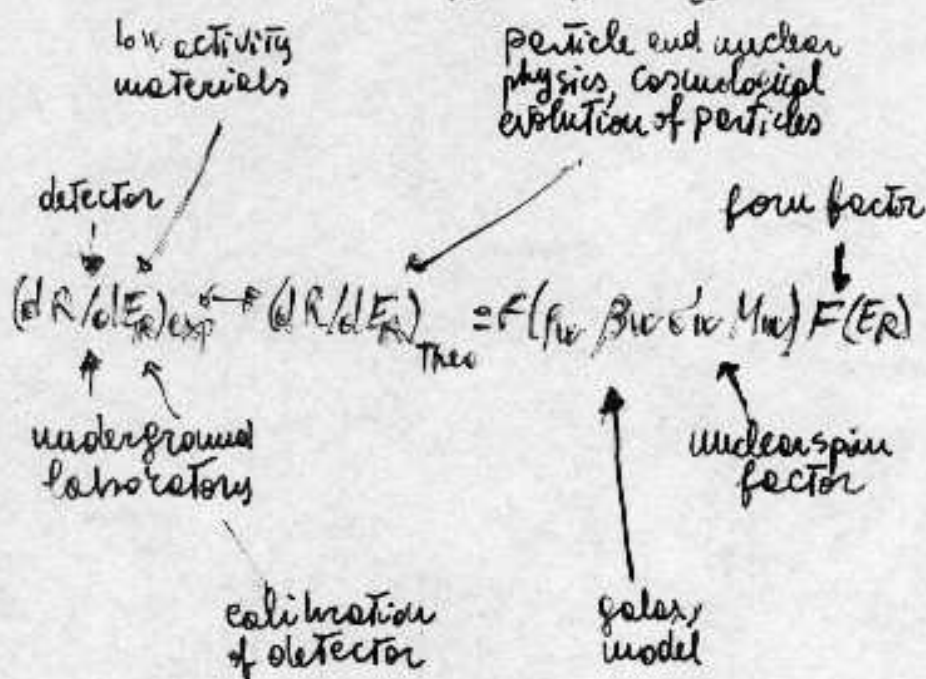 low activity
materials
particle and nuclear
physics, cosmological
evolution of particles
detector
form factor
(dR/dE_R)exp ↔ (dR/dE_R)Theo = F(ρw βw σw Mw) F(E_R)
underground
laboratory
nuclear spin
factor
calibration
of detector
galaxy
model